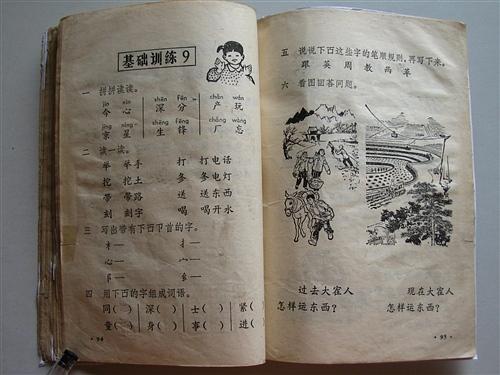 基础训练9
一 拼拼读读。
jīn xīn shēn fēn chǎn wán
今 心 深 分 产 玩
jīng xīng shēng fēng chǎng wàng
京 星 生 锋 厂 忘
二 读一读。
举 举手 打 打电话
挖 挖土 务 电灯
带 带路 送 送东西
刻 刻字 喝 喝开水
三 写出带有下面部首的字。
扌—
心—
阝—
四 用下面的字组成词语。
同( ) 深( ) 士( ) 紧( )
童( ) 身( ) 事( ) 进( )
· 94 ·
五 说说下面这些字的笔顺规则，再写下来。
跟 英 周 教 画 革
六 看图回答问题。
过去大寨人 现在大寨人
怎样运东西？ 怎样运东西？
· 95 ·